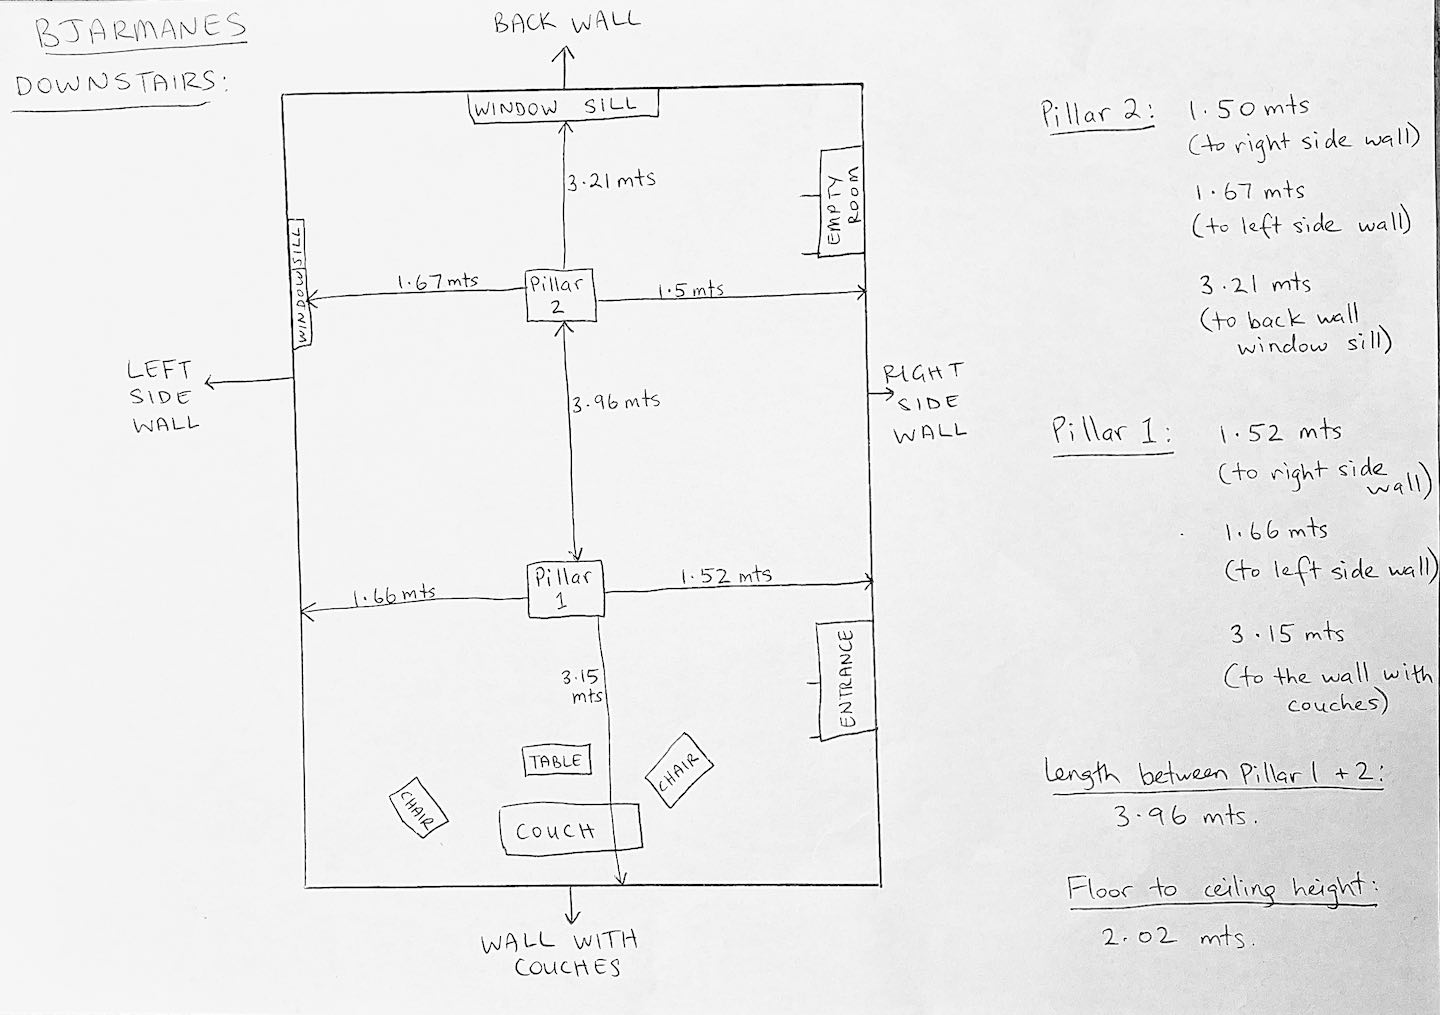 BJARMANES
DOWNSTAIRS:
BACK WALL
WINDOW SILL
3.21 mts
EMPTY
ROOM
WINDOW SILL
1.67 mts
Pillar
2
1.5 mts
LEFT
SIDE
WALL
3.96 mts
RIGHT
SIDE
WALL
1.66 mts
Pillar
1
1.52 mts
3.15
mts
ENTRANCE
TABLE
CHAIR
CHAIR
COUCH
WALL WITH
COUCHES
Pillar 2: 1.50 mts
(to right side wall)
1.67 mts
(to left side wall)
3.21 mts
(to back wall
window sill)
Pillar 1: 1.52 mts
(to right side
wall)
1.66 mts
(to left side wall)
3.15 mts
(to the wall with
couches)
Length between Pillar 1 + 2:
3.96 mts.
Floor to ceiling height:
2.02 mts.